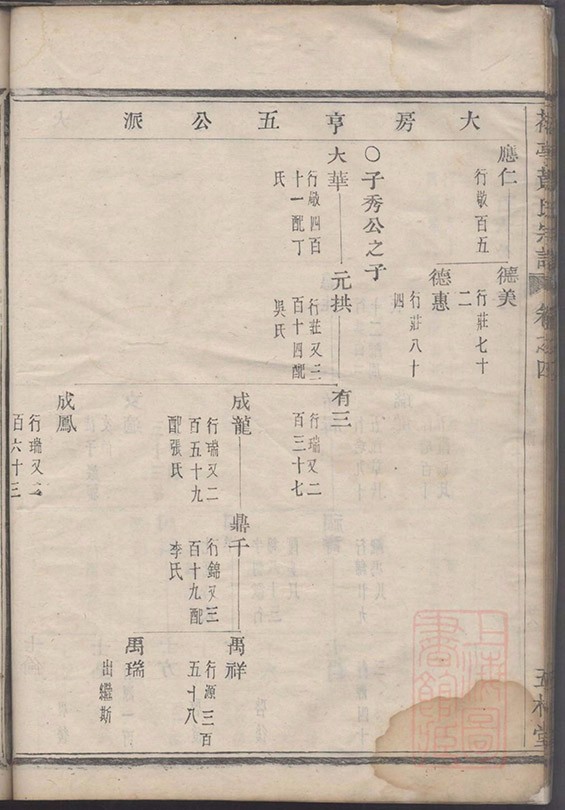 氏宗譜 卷之四
大房亨五公派
應仁
行敬百五
德美
行莊七十
二
德惠
行莊八十
四
○子秀公之子
大華
行敬四百
十一配丁
氏
元拱
行莊又三
百十四配
吳氏
有三
行瑞又二
百三十七
成龍
行瑞又二
百五十九
配張氏
鼎千
行錦又三
百十九配
李氏
禹祥
行源三百
五十八
禹瑞
出繼斯
成鳳
行瑞又
百六十三